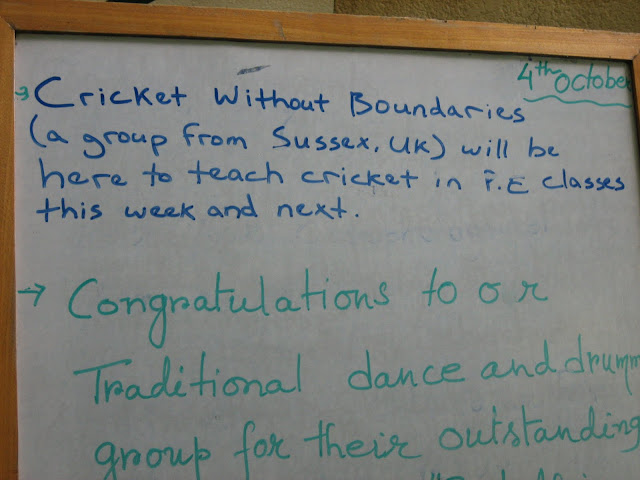 4th October
→ Cricket Without Boundaries
(a group from Sussex, UK) will be
here to teach cricket in P.E classes
this week and next.
→ Congratulations to o r
Traditional dance and drumm
group for their outstanding